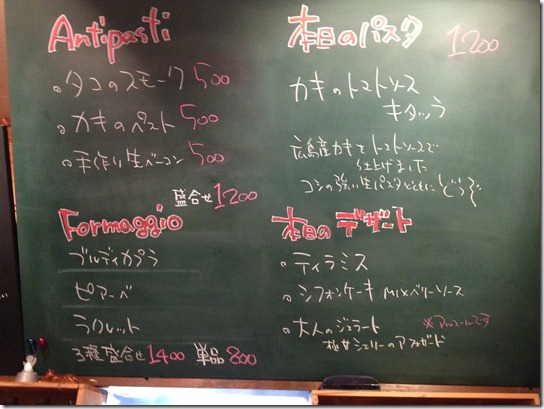 Antipasti
。タコのスモーク 500
。カキのペスト 500
。手作り生ベーコン 500
盛合せ 1200
Formaggio
ブルディカプラ
ピアーベ
ラクレット
3種盛合せ 1400 単品 800
本日のパスタ 1200
カキのトマトソース
キタッラ
広島産カキをトマトソースで
仕上げました
コシの強い生パスタとともにどうぞ
本日のデザート
。ティラミス
。シフォンケーキ MIXベリーソース
。大人のジェラート ※アルコールです
極甘シェリーのアフォガード